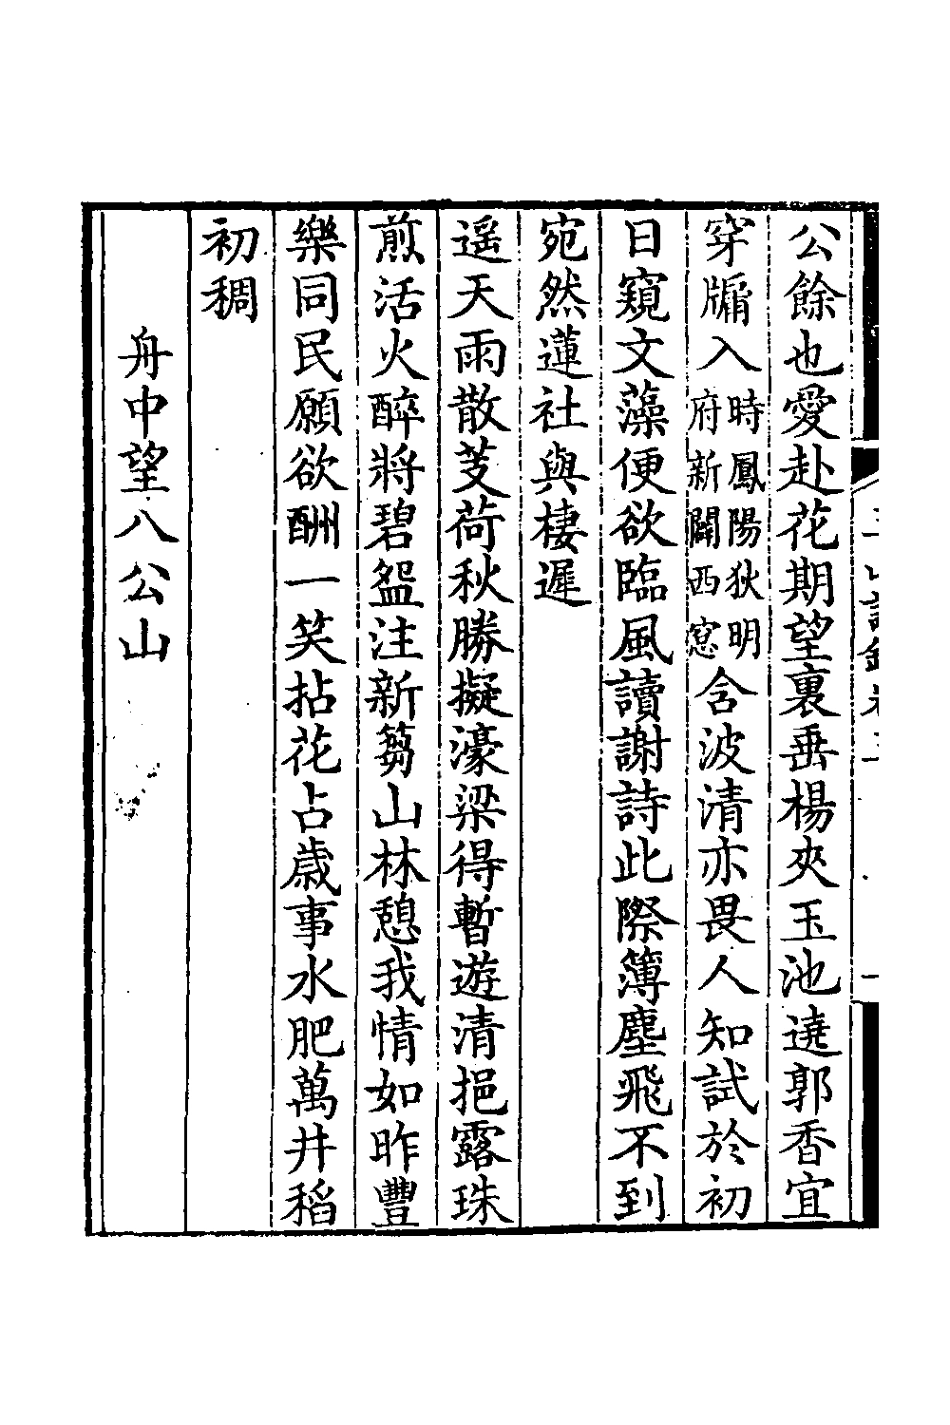 公餘也愛赴花期望裏垂楊夾玉池遶郭香宜
穿牖入時鳳陽狄明府新闢西窗含波清亦畏人知試於初
日窺文藻便欲臨風讀謝詩此際簿塵飛不到
宛然蓮社與棲遲
遥天雨散芰荷秋勝擬濠梁得暫遊清挹露珠
煎活火醉將碧盌注新芻山林憩我情如昨豐
樂同民願欲酬一笑拈花占歲事水肥萬井稻
初稠
舟中望八公山